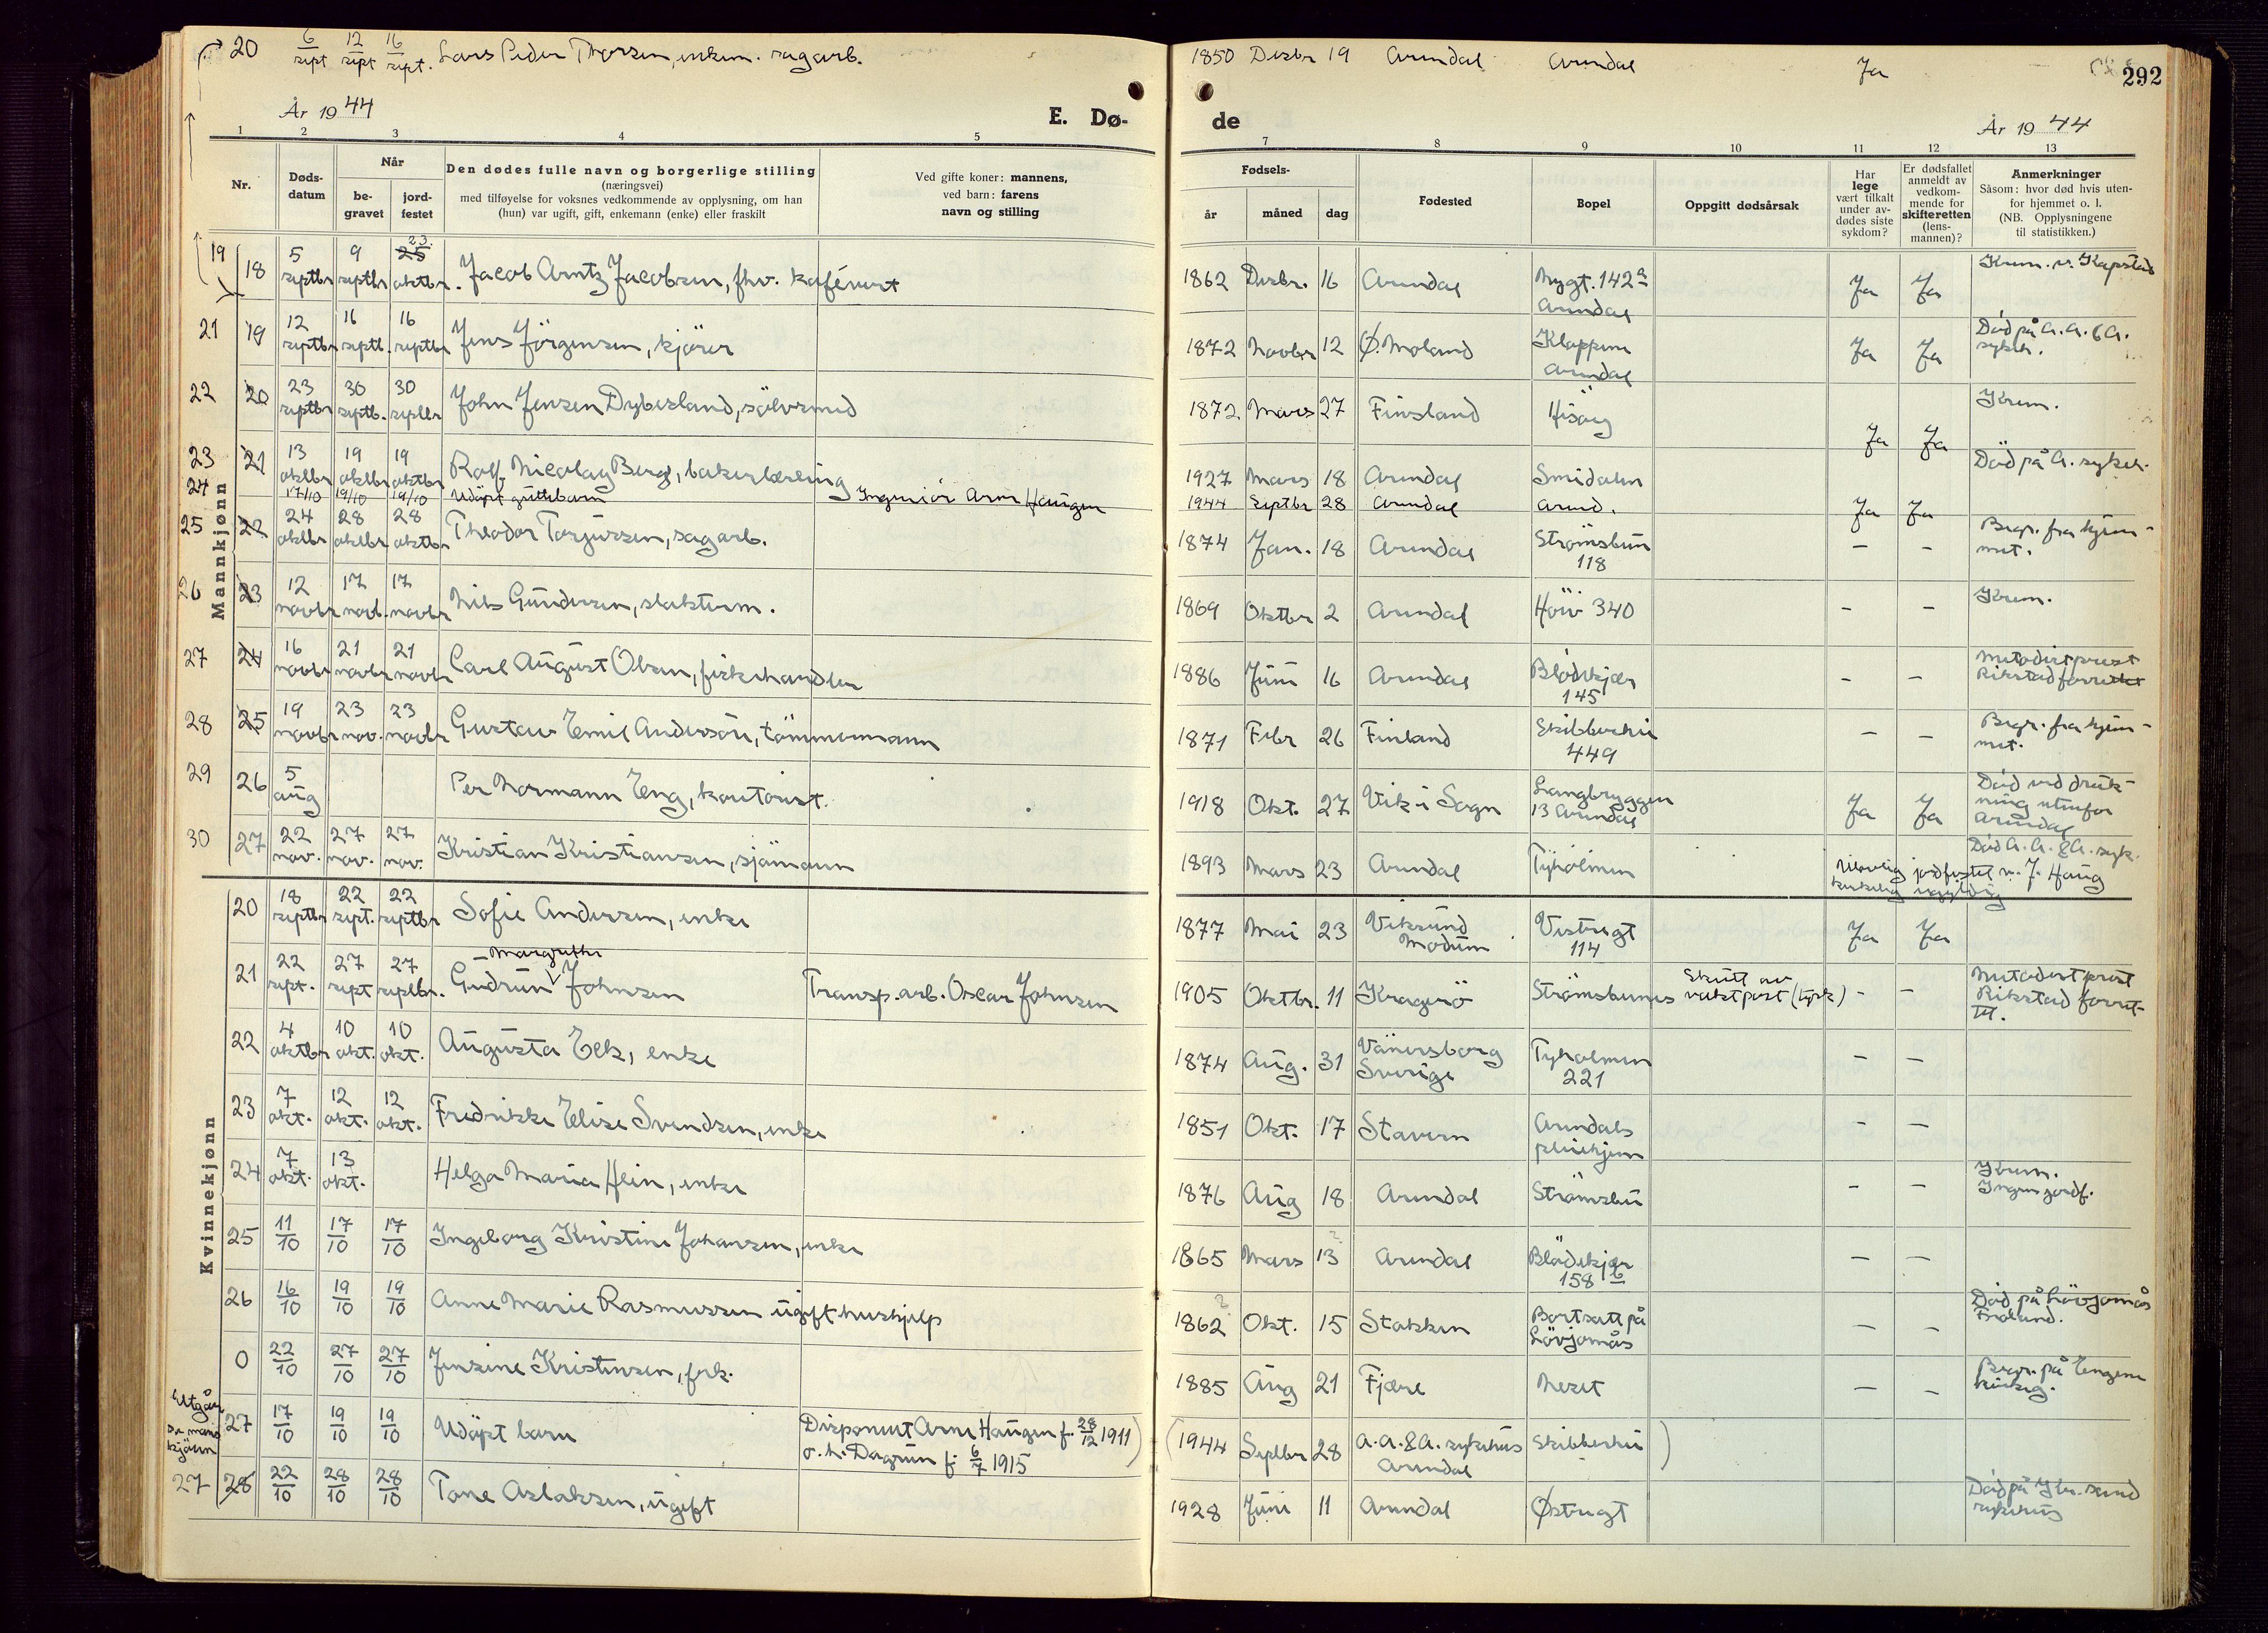 20 6/sept 12/sept 16/sept. Lars Peder Thorsen, enkem. sagarb. 1850 Desbr 19 Arundal Arundal Ja
292
År 19 44 E. Dø- de År 19 44
1 2 3 4 5 7 8 9 10 11 12 13
Nr. Døds-datum Når be-gravet jord-festet
Den dødes fulle navn og borgerlige stilling
(næringsvei)
med tilføyelse for voksnes vedkommende av opplysning, om han
(hun) var ugift, gift, enkemann (enke) eller fraskilt
Ved gifte koner: mannens,
ved barn: farens
navn og stilling
Fødsels- år måned dag
Fødested
Bopel
Oppgitt dødsårsak
Har lege vært tilkalt under av-dødes siste sykdom?
Er dødsfallet anmeldt av vedkom-mende for skifteretten (lens-mannen)?
Anmerkninger
Såsom: hvor død hvis uten-
for hjemmet o. l.
(NB. Opplysningene
til statistikken.)
Mannkjønn
19 18 5 septbr 9 septbr 25 23. oktbr. Jacob Arntz Jacobsen, fhv. kafévert 1862 Desbr. 16 Arundal Nygt. 142a Arundal Ja Ja Krem. v. Kapstad
21 19 12 septbr 16 septb. 16 septbr Jens Jörgensen, kjörer 1872 Novbr 12 Ø. Moland Kloppene Arundal Ja Ja Död på A. A. & A. sykeh.
22 20 23 septbr 30 septb. 30 septbr John Jensen Dybesland, sölvsmed 1872. Mars 27 Finsland Hisöy Ja Ja Krem.
23 21 13 oktbr 19 oktbr 19 oktbr Rolf Nicolay Berg, bakerlærling 1927 Mars 18 Arundal Smidalen Död på A. sykeh.
24 17/10 19/10 19/10 Udöpt guttebarn Ingeniör Arne Haugen 1944 Septbr 28 Arundal Arund. Ja Ja
25 22 24 oktbr 28 oktbr 28 oktbr Theodor Torjussen, sagarb. 1874 Jan. 18 Arundal Strömsbun 118 - - Begr. fra hjem-met.
26 23 12 novbr 17 novb. 17 novbr Nils Gundersen, slakterm. 1869 Oktbr 2 Arundal Höiv 340 - - Krem.
27 24 16 novbr 21 novbr 21 novbr Carl August Olsen, fiskehandler 1886 Juni 16 Arundal Blödekjær 145 - - Metodistprest Rikstad forrettet
28 25 19 novbr 23 nov. 23 novbr Gustav Emil Andersson, tömmermann 1871 Febr 26 Finland Skibberhei 449 - - Begr. fra hjem-met.
29 26 5 aug Per Normann Eng, kontorist. 1918 Okt. 27 Vik i Sogn Langbryggen 13 Arundal Ja Ja Död ved drukning utenfor Arundal
30 27 22 nov. 27 nov. 27 nov. Kristian Kristiansen, sjömann 1893 Mars 23 Arundal Tyholmen Död A. A. & A. syk.
Ulovlig jordfestet v. J. Haug
kirkelig ugyldig
Kvinnekjønn
20 18 septbr 22 sept. 22 septbr Sofie Andersen, enke 1877 Mai 23 Viksund Modum Vestregt 114 Ja Ja
21 22 sept. 27 sept 27 septbr. Gudrun Margrethe Johnsen Transp. arb. Oscar Johnsen 1905 Oktbr. 11 Kragerö Strömsbunes Skutt av vaktpost (tysk) - - Metodistprest Rikstad forret-tet.
22 4 oktbr 10 okt. 10 okt. Augusta Eek, enke 1874 Aug. 31 Vänersborg Sverige Tyholmen 221 - -
23 7 okt. 12 okt. 12 okt. Fredrikke Elise Svendsen, enke 1851 Okt. 17 Stavern Arundals pleiehjem - -
24 7 okt. 13 okt. Helga Maria Hein, enke 1876 Aug 18 Arundal Strömsbu - - Krem. Ingen jordf.
25 11/10 17/10 17/10 Ingeborg Kristine Johansen, enke 1865 Mars 13 ? Arundal Blödekjær 158 b - -
26 16/10 19/10 19/10 Anne Marie Rasmussen ugift hushjelp 1862 ? Okt. 15 Stokken Bortsatt på Lövjomås - - Död på Lövjomås Froland.
0 22/10 27/10 27/10 Jensine Kristensen, frk. 1885 Aug 21 Fjære Neset - - Begr. på Engene kirkeg.
Utgår se mannkjönn 27 17/10 19/10 19/10 Udöpt barn Disponent Arne Haugen f. 28/12 1911) o. h. Dagrun f. 6/7 1915 (1944 Septbr 28 A. A. & A. sykehus Arundal Skibberhei )
27 28 22/10 28/10 28/10 Tone Aslaksen, ugift 1928 Juni 11 Arundal Østregt Död på Kr.sand sykehus